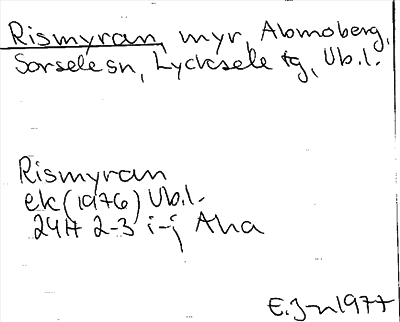 Rismyran, myr, Abmoberg,
Sorsele sn, Lycksele tg, Vb.l.
Rismyran
ek (1976) Vb.l.
24H 2-3 i-j Aha
E.J-n 1977